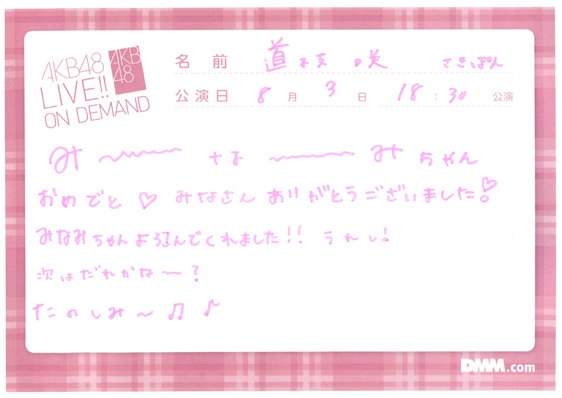 AKB48
LIVE!!
ON DEMAND
AKB
48
名前 道枝 咲 さきぽん
公演日 8 月 3 日 18:30 公演
み〜なみちゃん
おめでと♡ みなさん ありがとうございました!♡
みなみちゃんよろこんでくれました!! うれし!
次はだれかな〜?
たのしみ〜♫♪
DMM.com